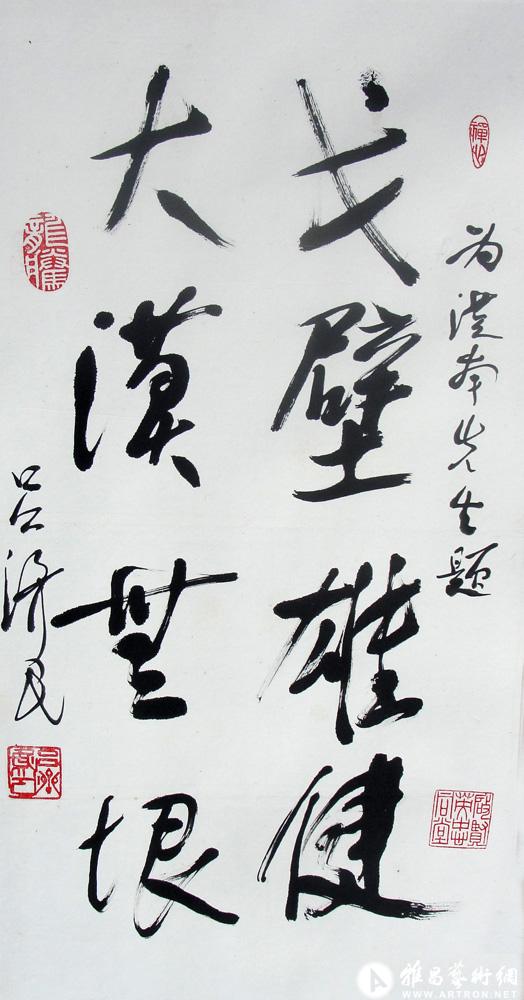 为洪本先生题
戈壁雄健
大漠無垠
吕济民
雅昌藝術網
WWW.ARTRON.NET